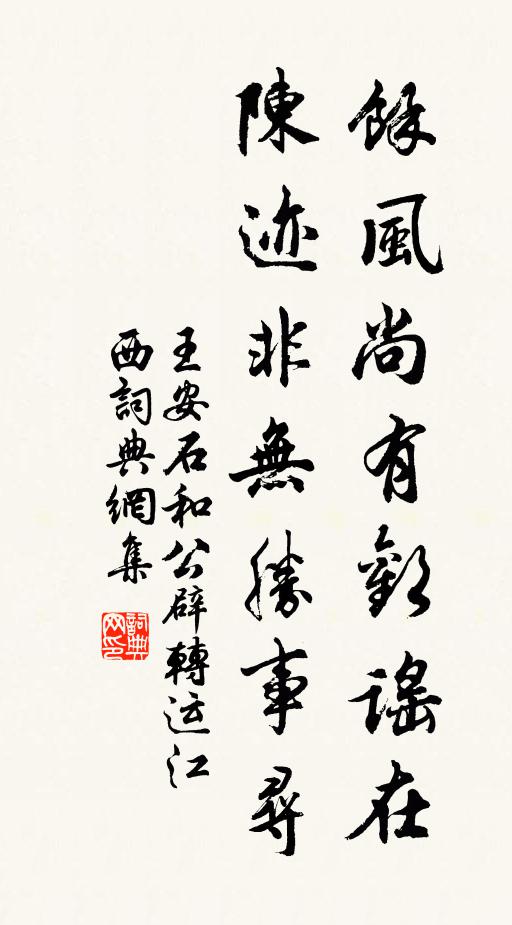 餘風尚有歡謠在
陳迹非無勝事尋
王安石和公辟轉运江
西詞典網集
詞典
网印